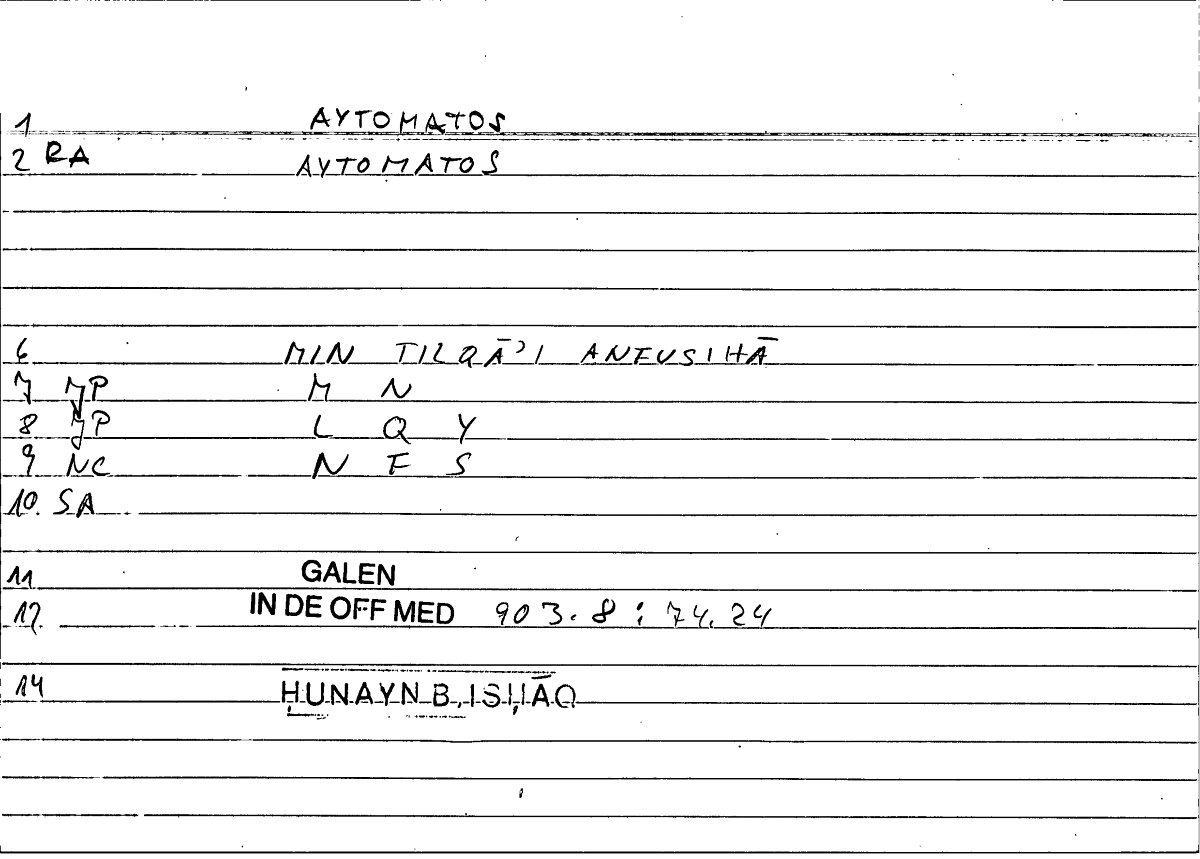 1 AYTOMATOS
2 RA AYTOMATOS
6 MIN TILQĀʾI ANFUSIHĀ
7 JP M N
8 JP L Q Y
9 NC N F S
10. SA
11 GALEN
12. IN DE OFF MED 903.8 : 74.24
14 ḤUNAYN B. ISḤĀQ